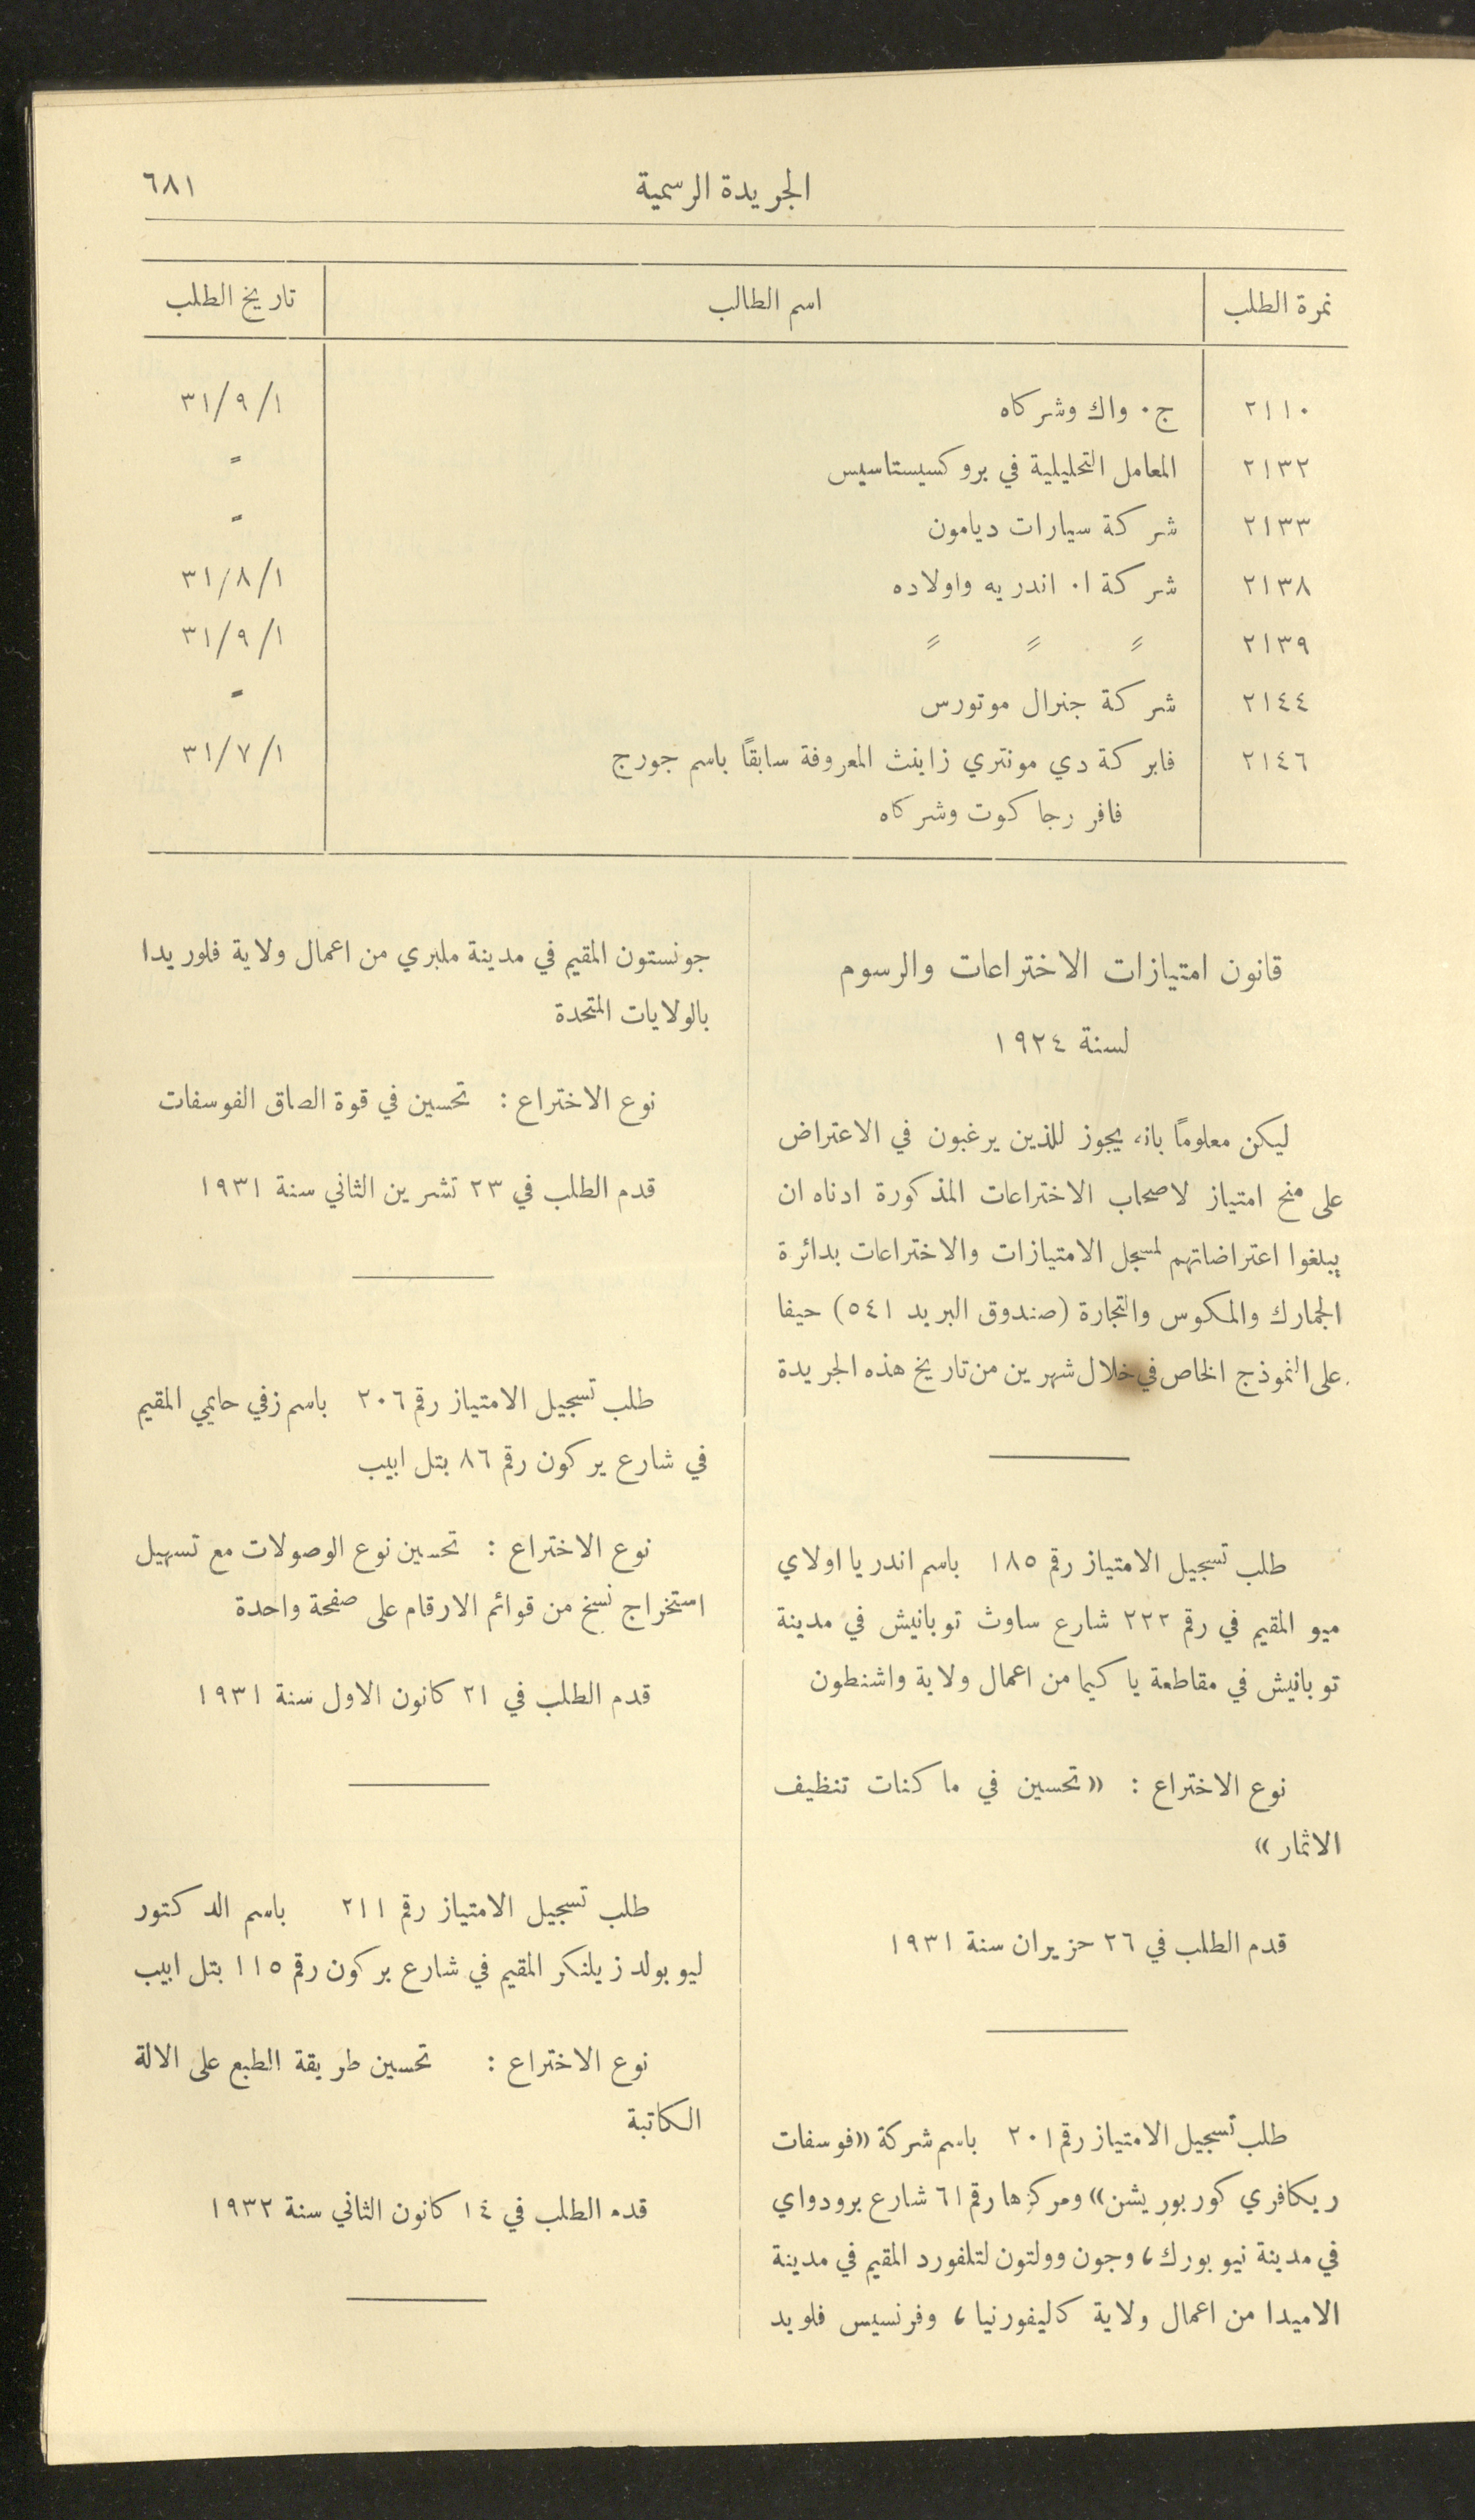 الجريدة الرسمية ٦٨١
نمرة الطلب اسم الطالب تاريخ الطلب
٢١١٠ ج٠ واك وشركاه ٣١/٩/١
٢١٣٢ المعامل التحليلية في بروكسيستاسيس =
٢١٣٣ شركة سيارات ديامون =
٢١٣٨ شركة ا٠ اندريه واولاده ٣١/٨/١
٢١٣٩ = = = ٣١/٩/١
٢١٤٤ شركة جنرال موتورس =
٢١٤٦ فابركة دي مونتري زاينث المعروفة سابقاً باسم جورج ٣١/٧/١
فافر رجاكوت وشركاه
قانون امتيازات الاختراعات والرسوم
لسنة ١٩٢٤
ليكن معلوماً بانه يجوز للذين يرغبون في الاعتراض
على منح امتياز لاصحاب الاختراعات المذكورة ادناه ان
يبلغوا اعتراضاتهم لمسجل الامتيازات والاختراعات بدائرة
الجمارك والمكوس والتجارة (صندوق البريد ٥٤١) حيفا
على النموذج الخاص في خلال شهرين من تاريخ هذه الجريدة
طلب تسجيل الامتياز رقم ١٨٥ باسم اندريا اولاي
ميو المقيم في رقم ٢٢٢ شارع ساوث توبانيش في مدينة
توبانيش في مقاطعة ياكيما من اعمال ولاية واشنطون
نوع الاختراع : «تحسين في ماكنات تنظيف
الاثمار»
قدم الطلب في ٢٦ حزيران سنة ١٩٣١
طلب تسجيل الامتياز رقم ٢٠١ باسم شركة «فوسفات
ريكافري كوربوريشن» ومركزها رقم ٦١ شارع برودواي
في مدينة نيويورك، وجون وولتون لتلفورد المقيم في مدينة
الاميدا من اعمال ولاية كاليفورنيا، وفرنسيس فلويد
جونستون المقيم في مدينة ملبري من اعمال ولاية فلوريدا
بالولايات المتحدة
نوع الاختراع : تحسين في قوة الصاق الفوسفات
قدم الطلب في ٢٣ تشرين الثاني سنة ١٩٣١
طلب تسجيل الامتياز رقم ٢٠٦ باسم زفي حايمي المقيم
في شارع يركون رقم ٨٦ بتل ابيب
نوع الاختراع : تحسين نوع الوصولات مع تسهيل
استخراج نسخ من قوائم الارقام على صفحة واحدة
قدم الطلب في ٢١ كانون الاول سنة ١٩٣١
طلب تسجيل الامتياز رقم ٢١١ باسم الدكتور
ليوبولد زيلنكر المقيم في شارع يركون رقم ١١٥ بتل ابيب
نوع الاختراع : تحسين طريقة الطبع على الالة
الكاتبة
قدم الطلب في ١٤ كانون الثاني سنة ١٩٣٢